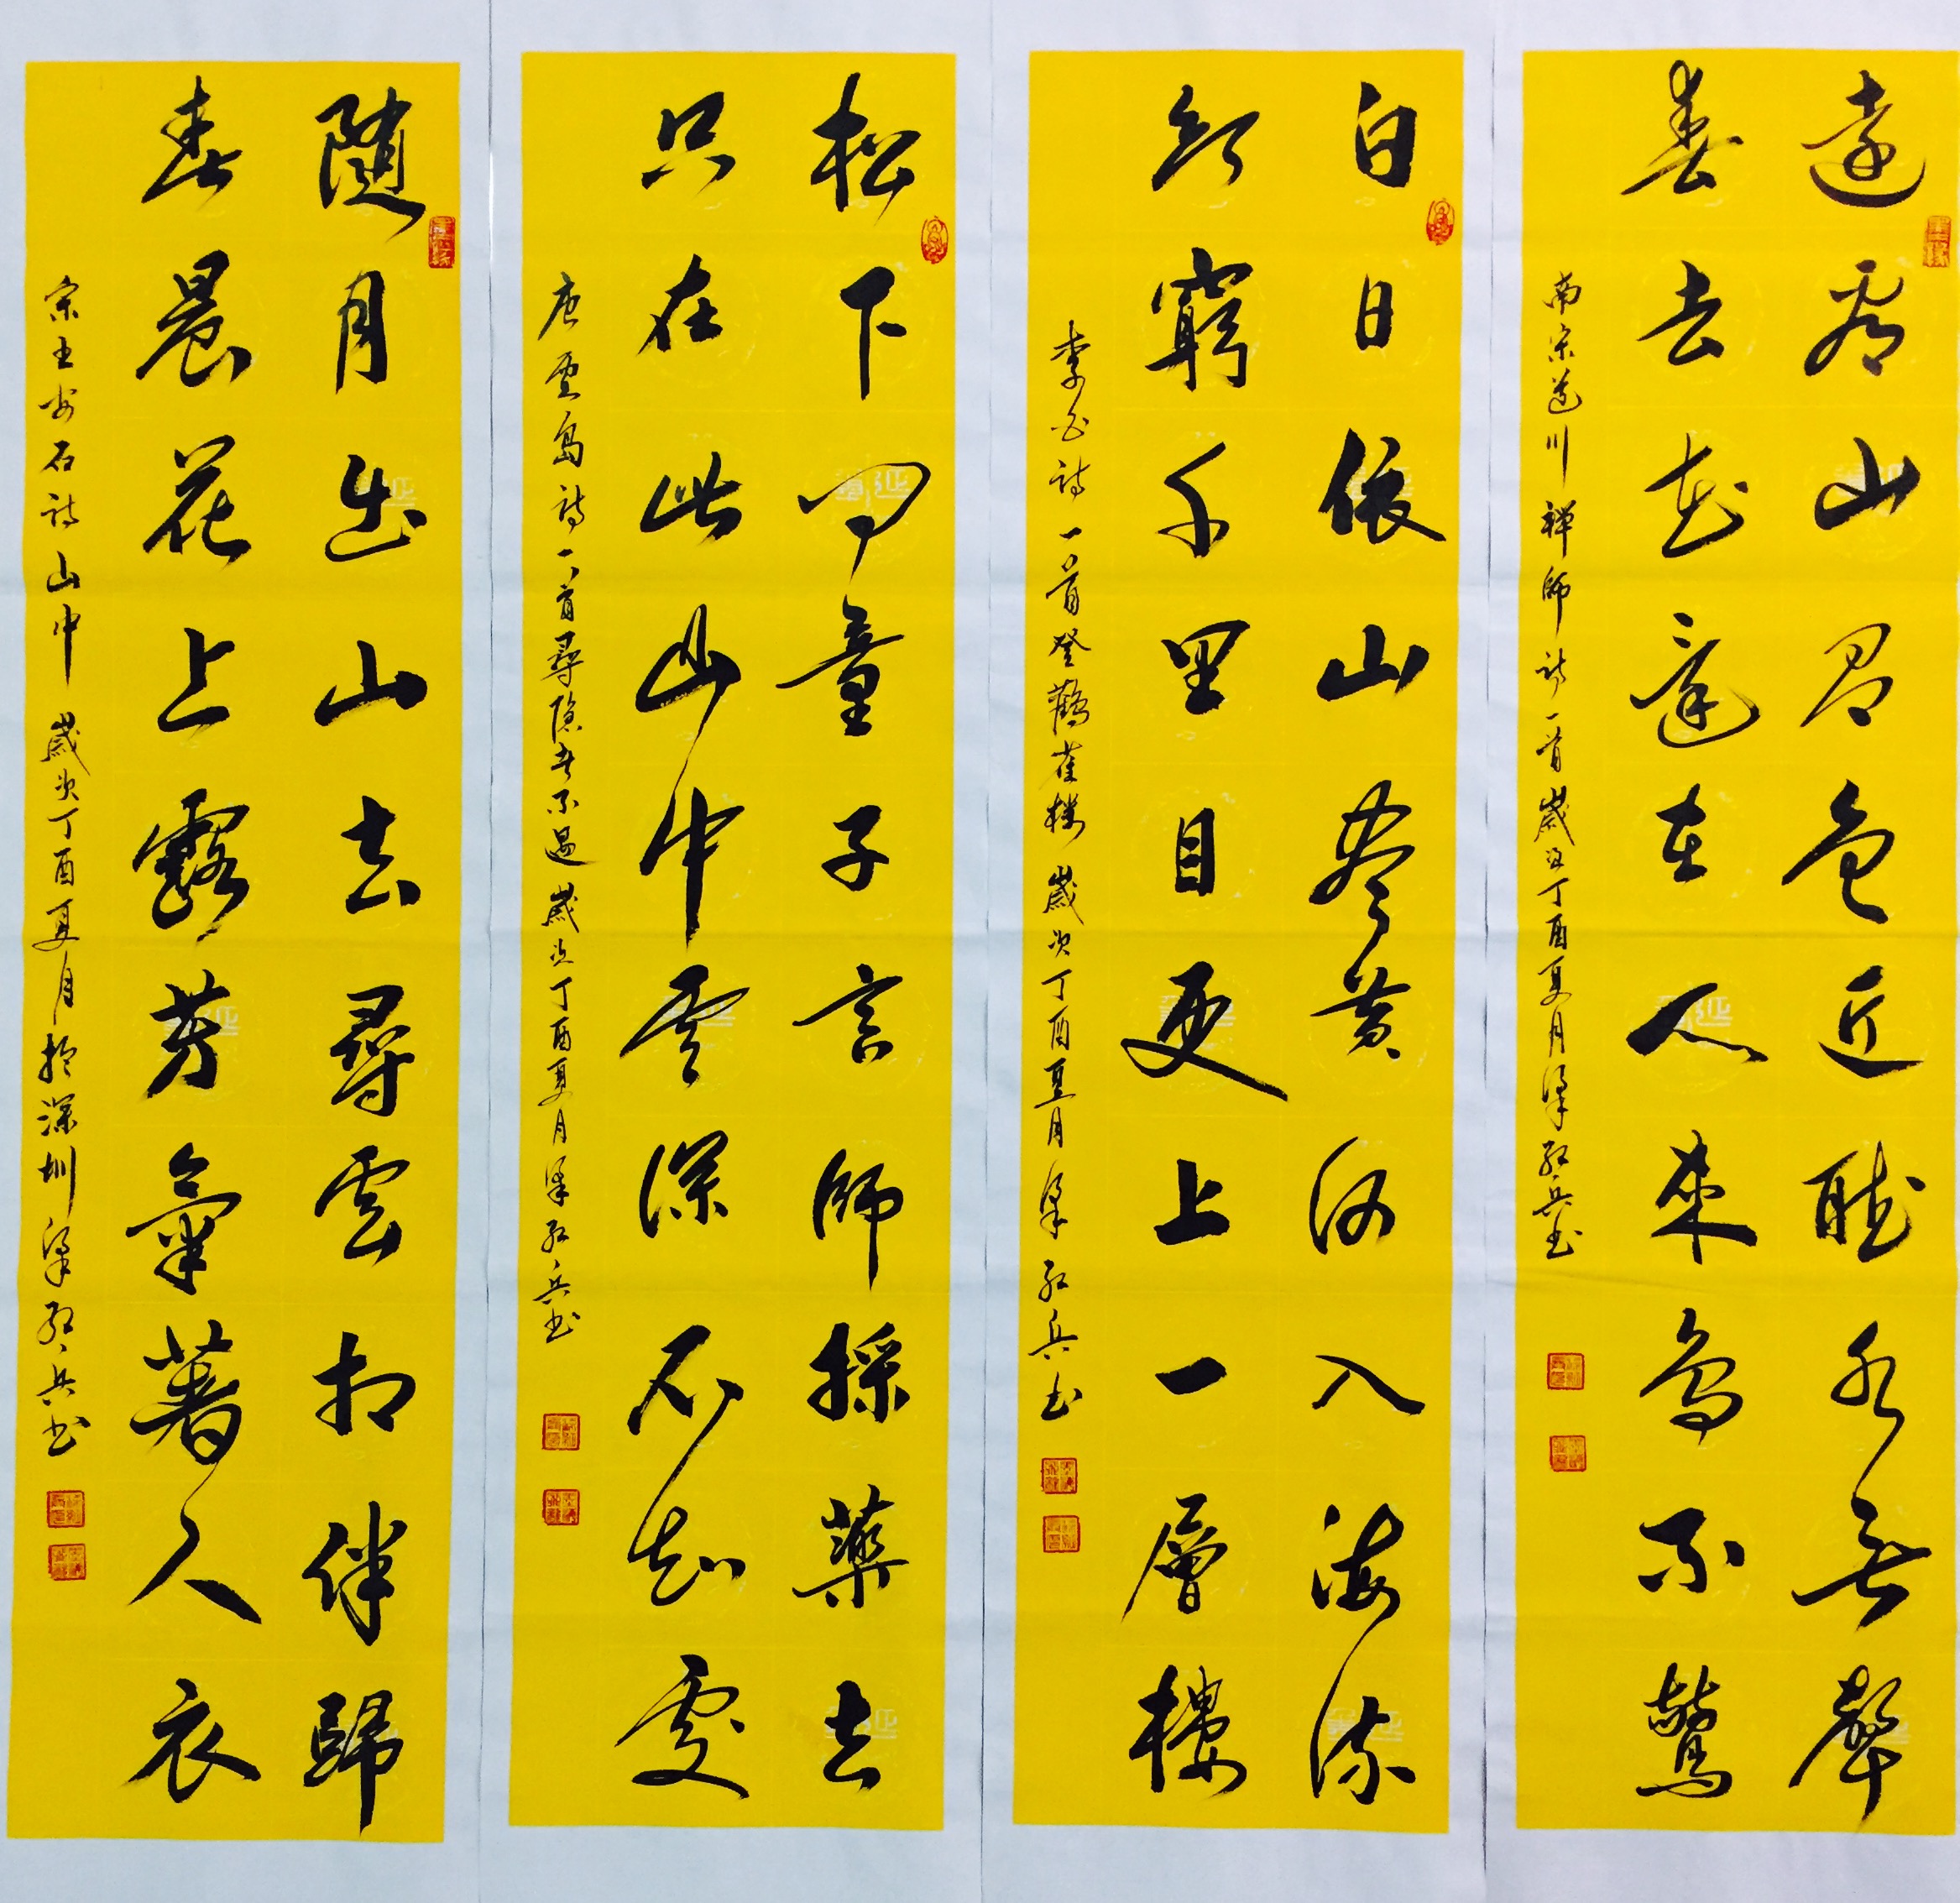 遠看山有色近聽水無聲
春去花還在人來鳥不驚
南宋道川禪師詩一首歲次丁酉夏月梁紅兵書
白日依山盡黃河入海流
欲窮千里目更上一層樓
李白詩一首登鸛雀樓歲次丁酉夏月梁紅兵書
松下問童子言師採藥去
只在此山中雲深不知處
唐賈島詩一首尋隱者不遇歲次丁酉夏月梁紅兵書
隨月出山去尋雲相伴歸
春晨花上露芳氣著人衣
宋王安石詩山中歲次丁酉夏月於深圳梁紅兵書